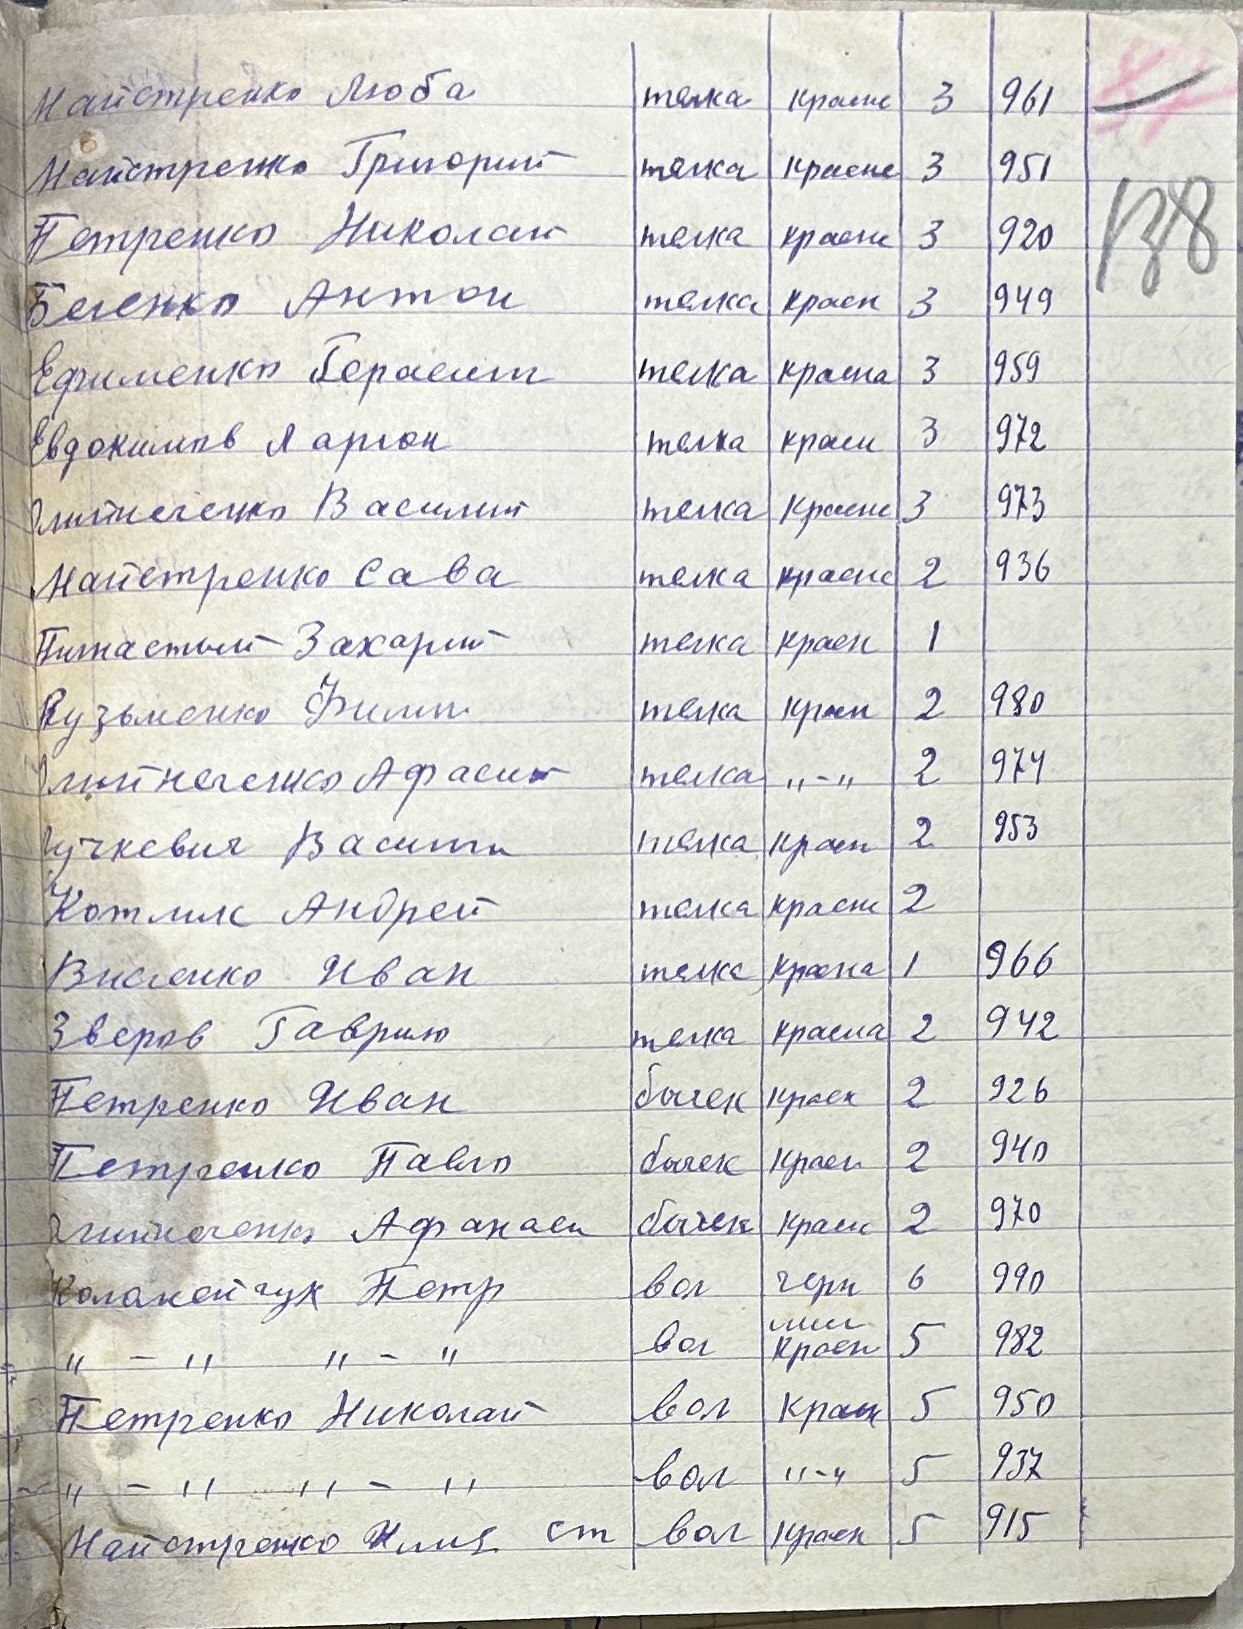 Майстренко Люба телка красн 3 961
Майстренко Григорий телка красне 3 951
138
Петренко Николай телка красн 3 920
Беленко Антон телка красн 3 949
Ефименко Герасим телка красна 3 959
Евдокимов Ларион телка красн 3 972
Василий телка красне 3 973
Майстренко Сава телка красне 2 936
Захарий телка красн 1
Кузьменко Филип телка красн 2 980
телка „-„ 2 974
Васили телка красн 2 953
Котлик Андрей телка красн 2
Иван телка красна 1 966
Зверов Гаврило телка красна 2 942
Петренко Иван бычек красн 2 926
Петренко Павло бычек красн 2 940
Афанаси бычек красн 2 970
Петр вол черн 6 990
„ - „ „ - „ вол красн 5 982
Петренко Николай вол красн 5 950
„ - „ „ - „ вол „-„ 5 937
Майстренко Илия ст вол красн 5 915